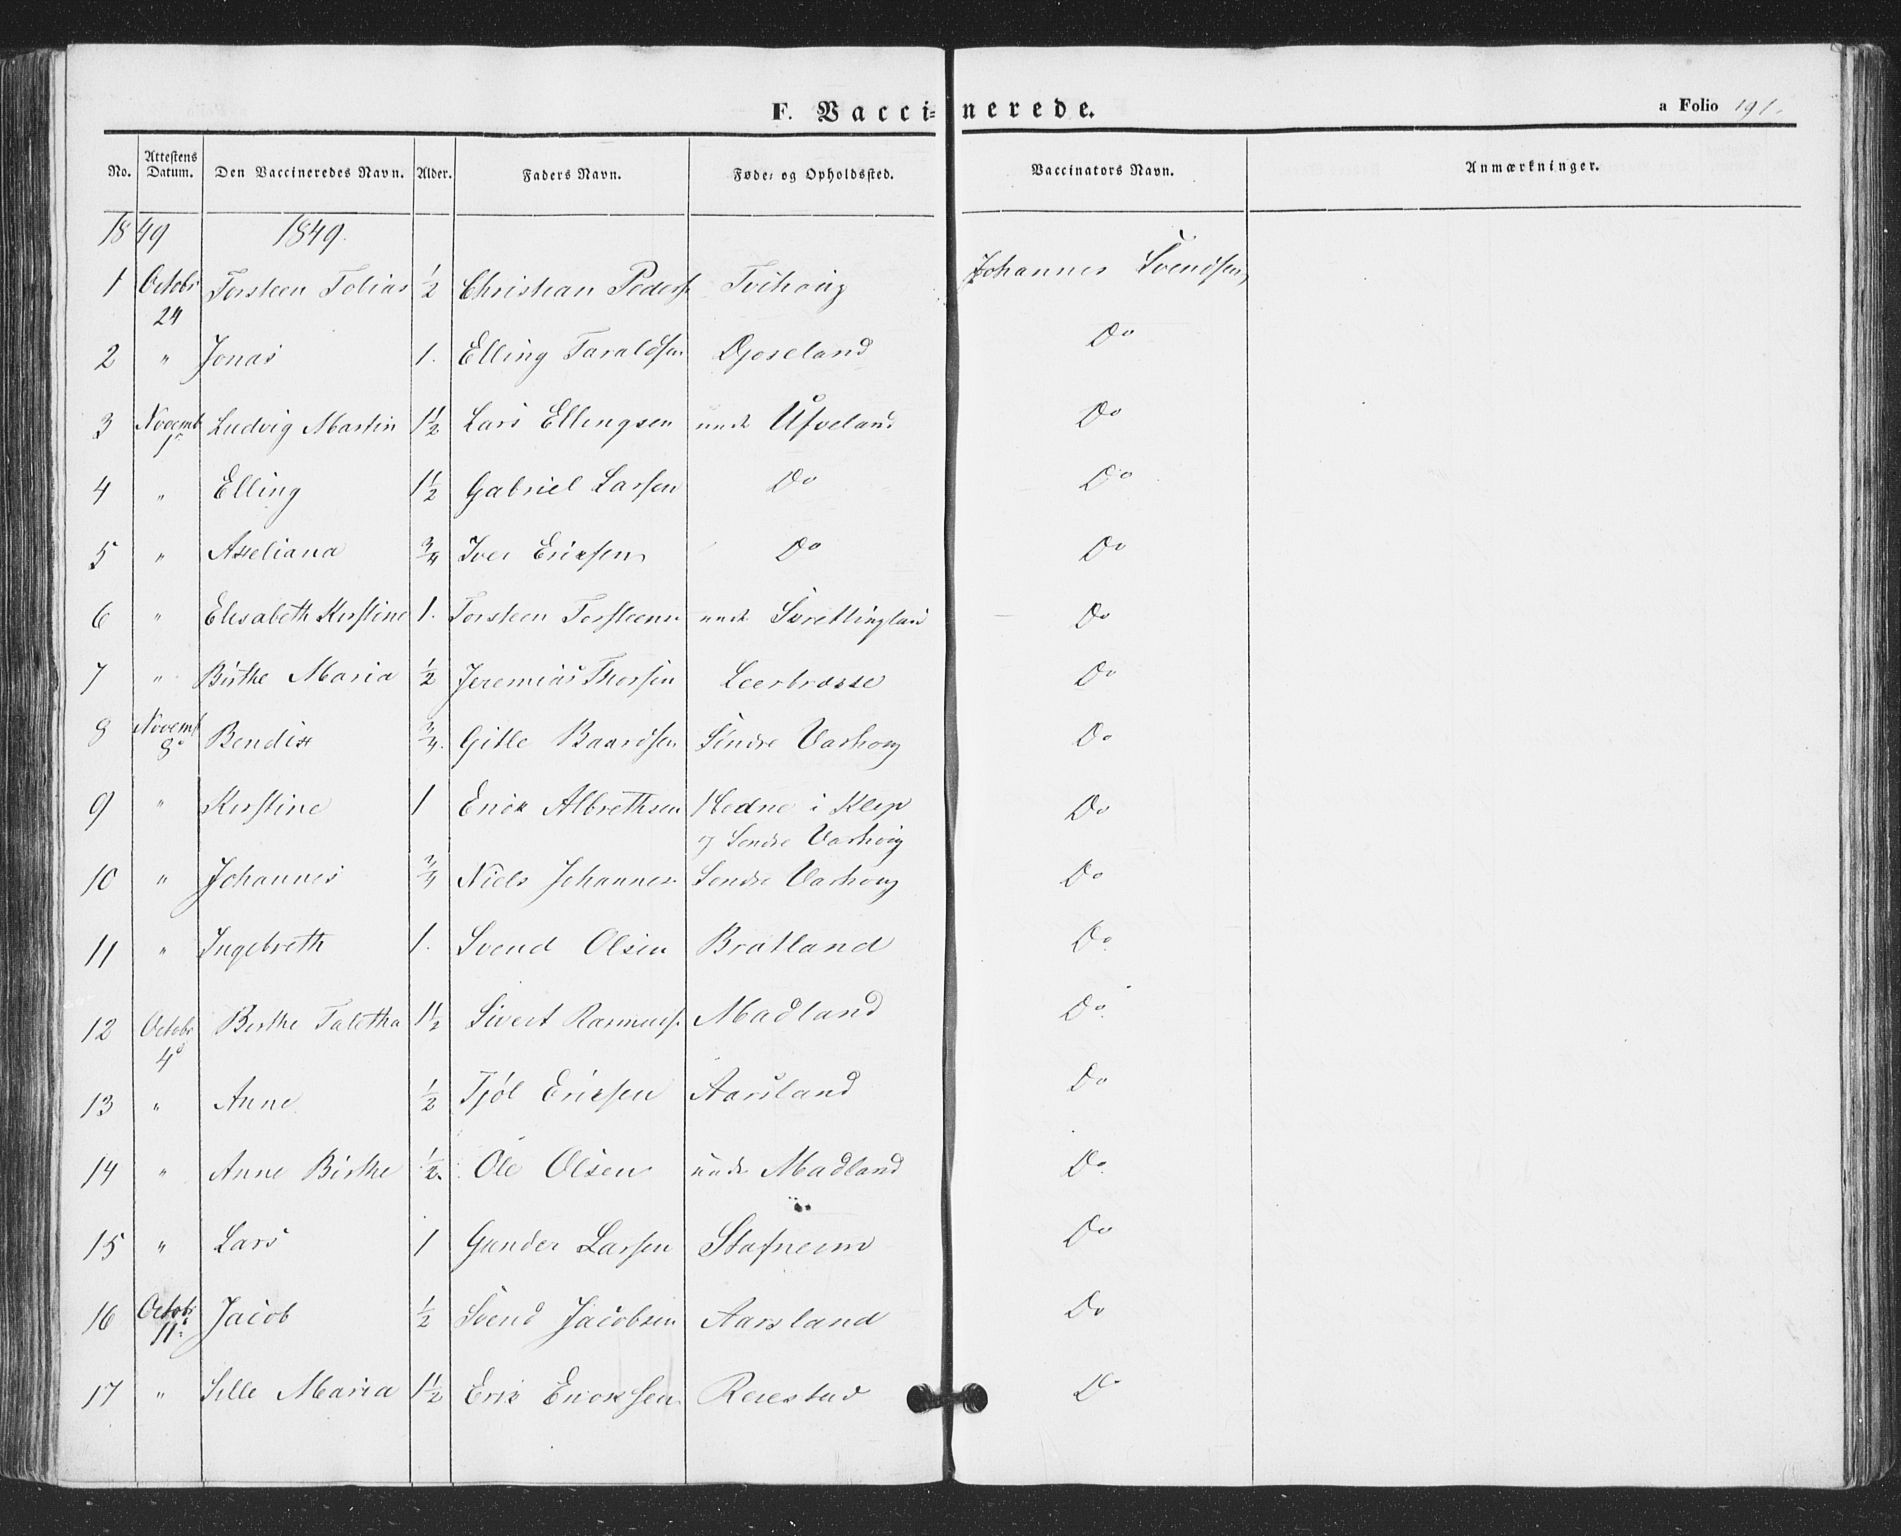 F. Vaccinerede.
a Folio 191.
No. Attestens Datum. Den Vaccineredes Navn. Alder. Faders Navn. Føde- og Opholdssted. Vaccinators Navn. Anmærkninger.
1849 1849.
1 Octobr 24 Torsteen Tobias ½ Christian Peders Tvihoug Johannes Svendsen
2 " Jonas 1. Elling Taraldsen Djoseland Do
3 Novemb 1ste Ludvig Martin 1½ Lars Ellingsen undr Ufveland Do
4 " Elling 1½ Gabriel Larsen Do Do
5 " Axeliana ¾ Iver Ericksen Do Do
6 " Elisabeth Kirstine 1. Torsteen Torsteens undr Svertinglan Do
7 " Birthe Maria ½ Jeremias Thorsen Leerbræcke Do
8 Novemb 8d Bendix ¾. Gitle Baardsen Søndre Varhoug Do
9 " Kirstine 1 Erick Albrethsen Hodne i Klep Do
og Søndre Varhoug
10 " Johannes ¾ Niels Johannes Søndre Varhoug Do
11 " Ingebreth 1. Svend Olsen Brotland Do
12 Octobr 4d Berthe Taletha 1½ Sivert Rasmuss. Madland Do
13 " Anne ½ Tjøl Ericksen Aarsland Do
14 " Anne Birthe ½. Ole Olsen undr Madland Do
15 " Lars 1 Gunder Larsen Stafneim Do
16 Octob: 11: Jacob ½ Svend Jacobsen Aarsland Do
17 " Sille Maria 1½ Erik Ericksen Reiestad Do